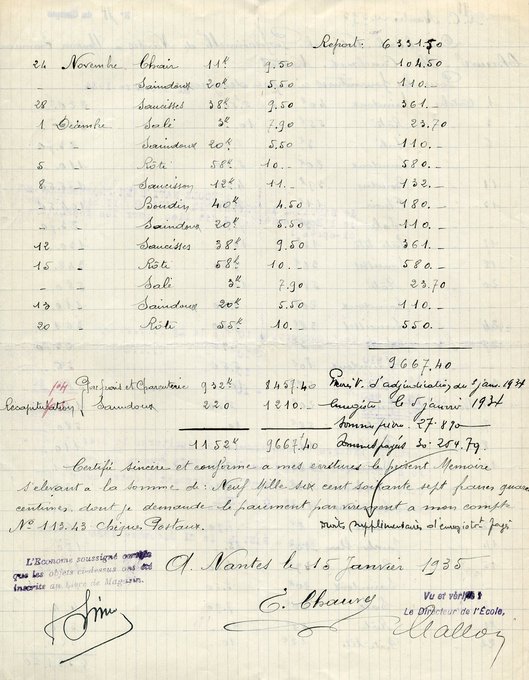 Report: 6331.50
24 Novembre Chair 11k 9.50 104.50
- Saindoux 20k 5.50 110.-
28 Saucisses 38k 9.50 361.-
1 Décembre Salé 3k 7.90 23.70
- Saindoux 20k 5.50 110.-
5 Rôti 58k 10.- 580.-
8 Saucisson 12k 11.- 132.-
- Boudin 40k 4.50 180.-
- Saindoux 20k 5.50 110.-
12 Saucisses 38k 9.50 361.-
15 Rôti 58k 10.- 580.-
- Salé 3k 7.90 23.70
13 Saindoux 20k 5.50 110.-
20 Rôti 55k 10.- 550.-
9667.40
Porc frais et Charcuterie 932k 8457.40
Récapitulation Saindoux 220 1210.-
1152k 9667.40
d'adjudication du 5 janv. 1934
enregistré le 5 janvier 1934
27.890
30.254.79
Certifié sincère et conforme à mes écritures le présent Mémoire
s'élevant à la somme de: Neuf Mille six cent soixante sept francs quarante
centimes, dont je demande le paiement par virement à mon compte
N° 113.43 Chèques Postaux.
Droits supplémentaires d'enregistt payés
A. Nantes le 15 Janvier 1935
L'Econome soussigné certifie
que les objets ci-dessus ont été
inscrits au Livre de Magasin.
E. Chauvet
Vu et vérifié
Le Directeur de l'École,